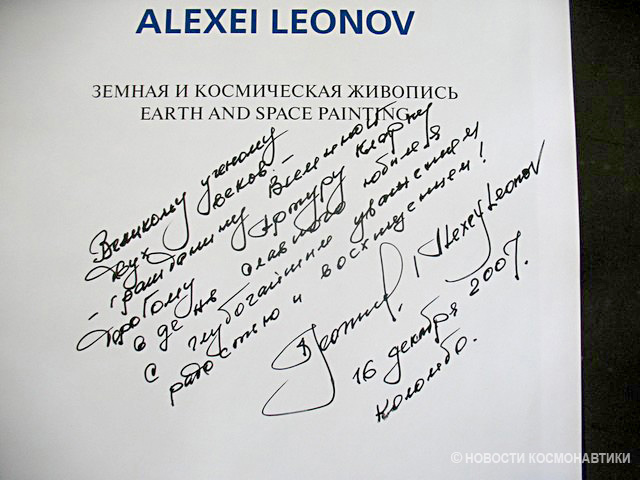 ALEXEI LEONOV
ЗЕМНАЯ И КОСМИЧЕСКАЯ ЖИВОПИСЬ
EARTH AND SPACE PAINTING
Великому ученому
двух веков –
– гражданину Вселенной
дорогому Артуру Кларку
в день славного юбилея
с глубочайшим уважением
радостью и восхищением!
Леонов. Alexey Leonov
16 декабря 2007.
Коломбо.
© НОВОСТИ КОСМОНАВТИКИ